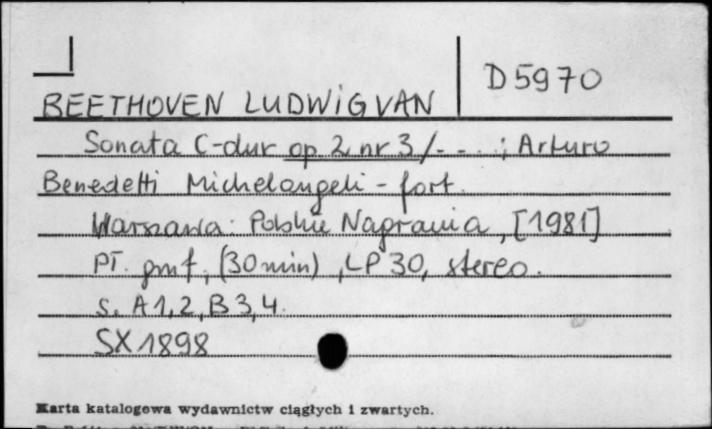 D5970
BEETHOVEN LUDWIG VAN
Sonata C-dur op 2 nr 3/- - . ; Arturo
Benedetti Michelangeli - fort.
Warszawa: Polskie Nagrania, [1981]
PŁ. gmf, (30 min), LP 30, stereo.
s. A1, 2, B 3, 4.
SX 1898
Karta katalogowa wydawnictw ciągłych i zwartych.